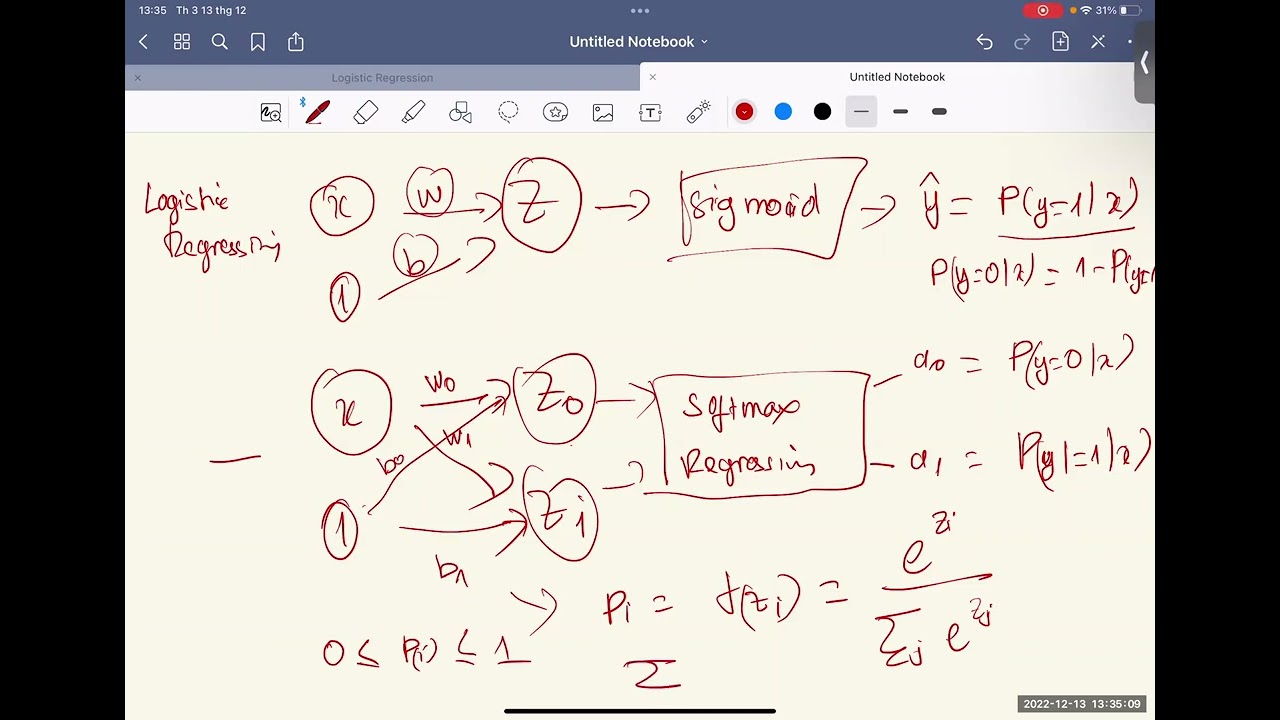 13:35 Th 3 13 thg 12
31%
Untitled Notebook
Logistic Regression
Untitled Notebook
Logistic
Regression
x
w
b
1
Z
Sigmoid
ŷ = P(y=1|x)
P(y=0|x) = 1-P(y=1
x
1
w0
w1
b0
b1
Z0
Zi
Softmax
Regression
a0 = P(y=0|x)
a1 = P(y|=1|x)
Pi = f(zi) = e^zi / Σj e^zj
0 ≤ P(i) ≤ 1
Σ
2022-12-13 13:35:09